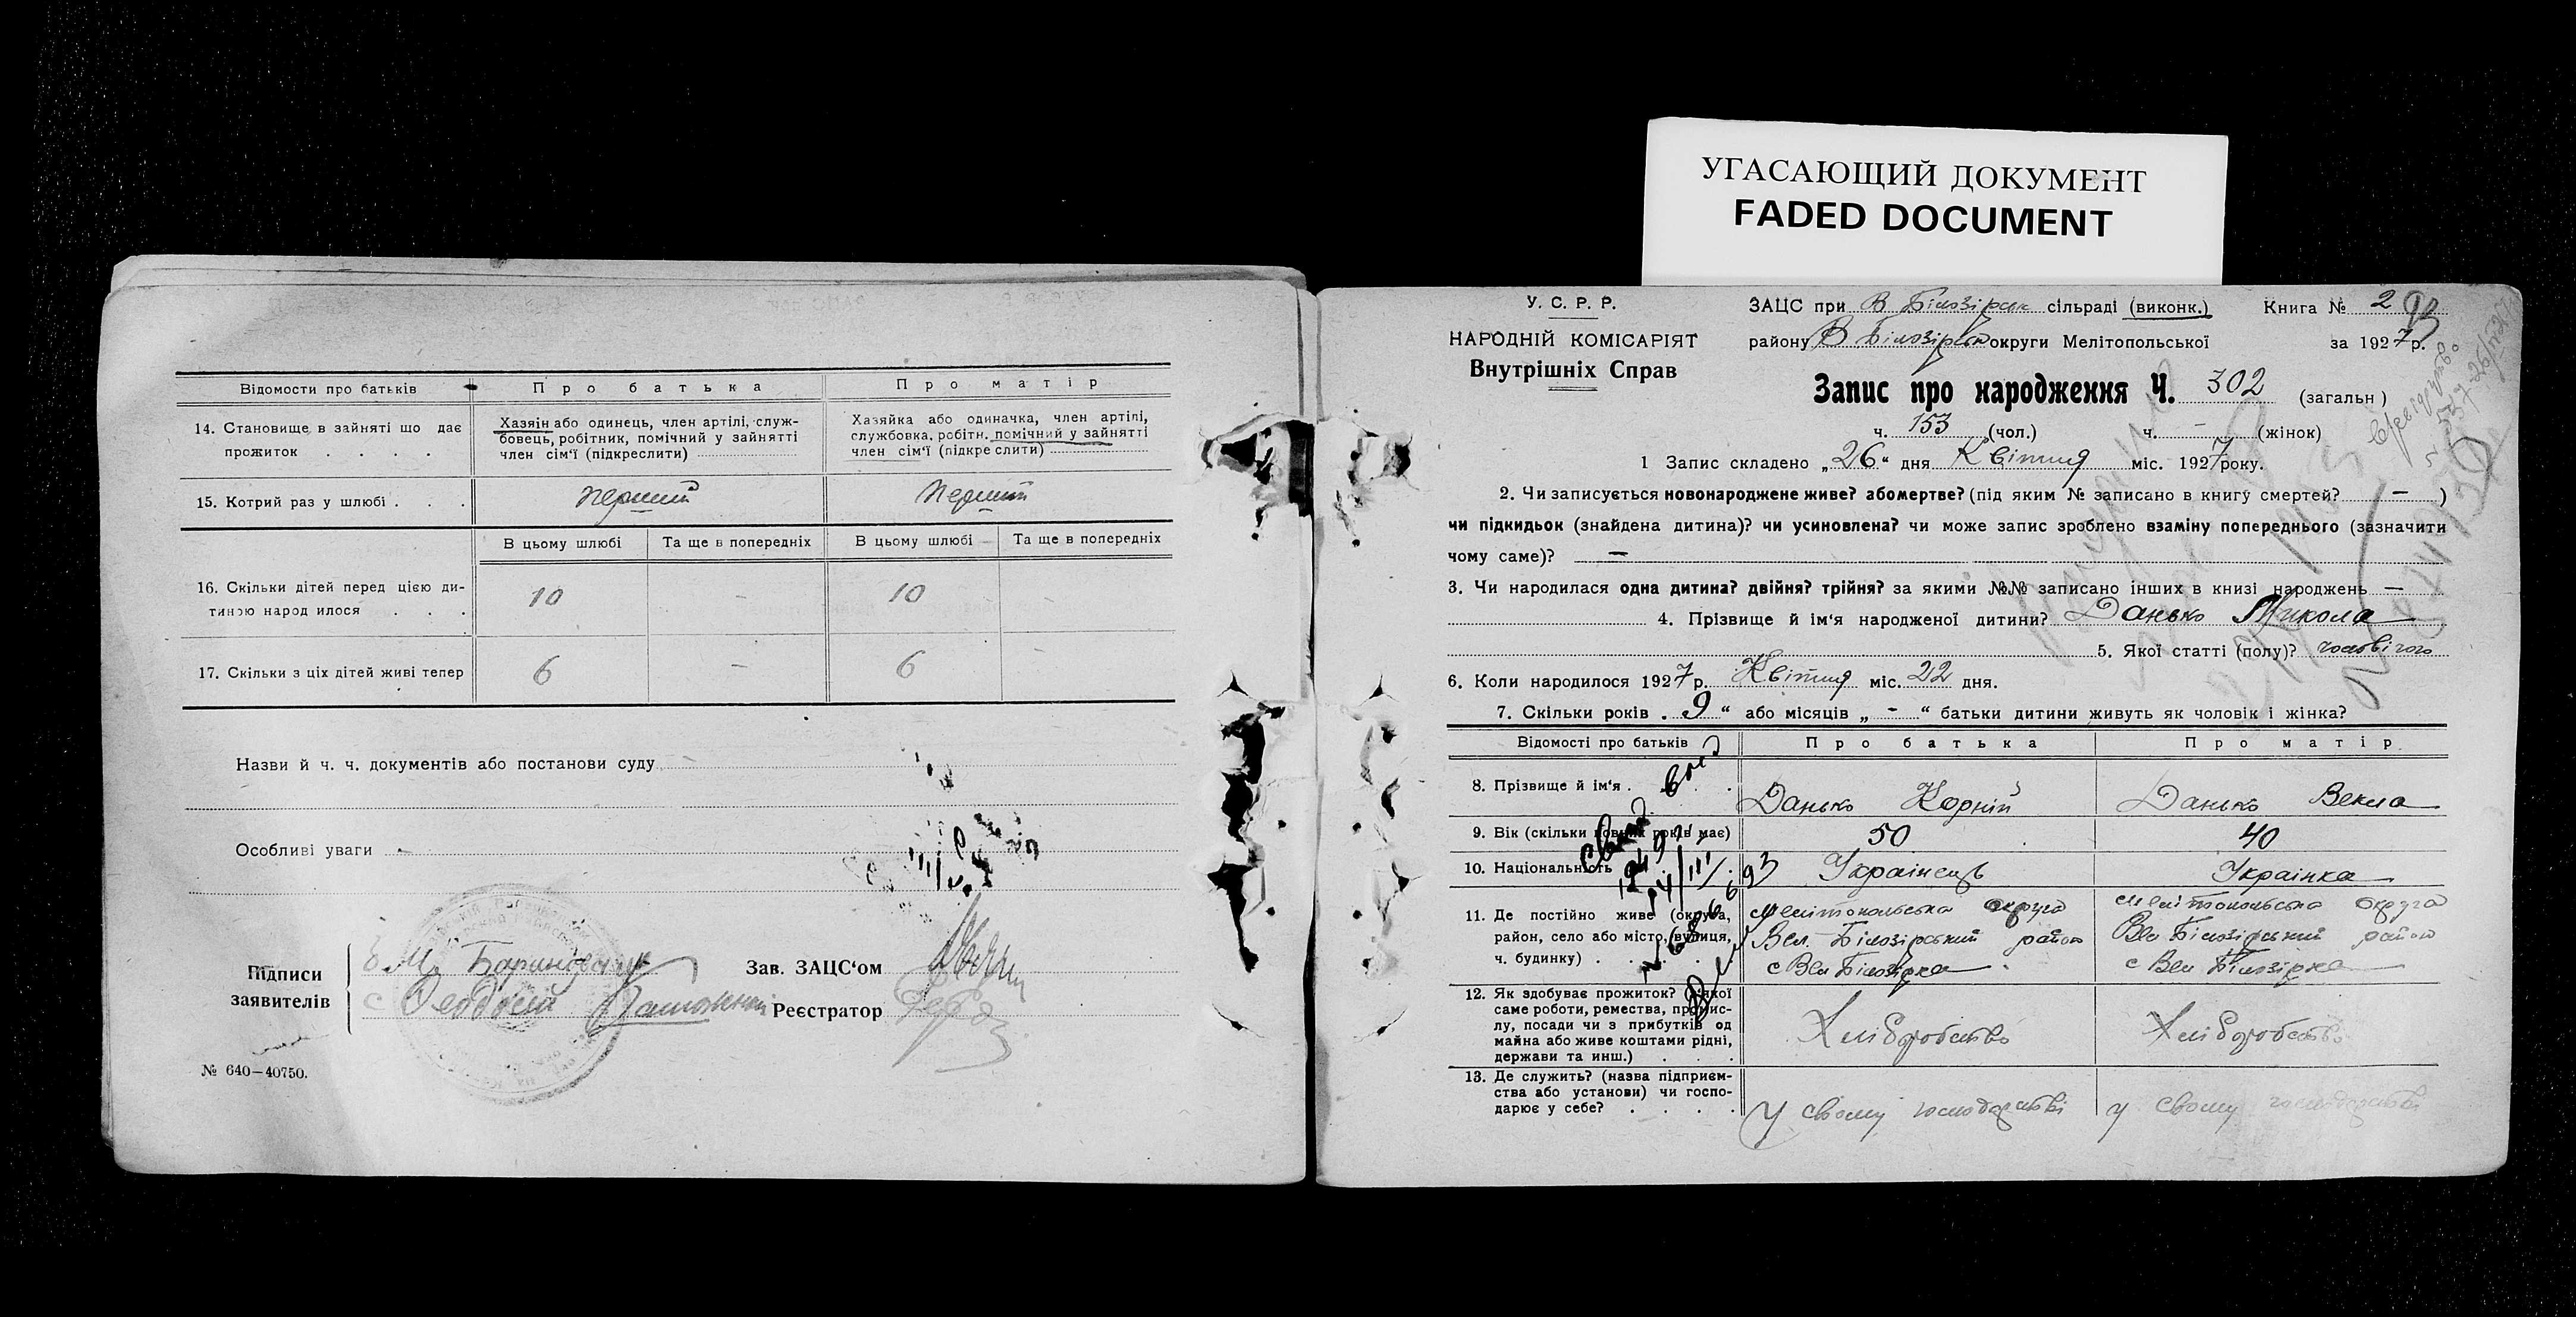 УГАСАЮЩИЙ ДОКУМЕНТ
FADED DOCUMENT
Відомости про батьків Про батька Про матір
14. Становище в зайняті що дає
прожиток . . . .
Хазяін або одинець, член артілі, служ-
бовець, робітник, помічний у зайнятті
член сім'ї (підкреслити)
Хазяйка або одиначка, член артілі,
службовка, робітн. помічний у зайнятті
член сім'ї (підкреслити)
15. Котрий раз у шлюбі . . . перший перший
В цьому шлюбі Та ще в попередніх В цьому шлюбі Та ще в попередніх
16. Скільки дітей перед цією ди-
тиною народилося . . . 10 - 10 -
17. Скільки з ціх дітей живі тепер 6 - 6 -
Назви й ч. ч. документів або постанови суду
Особливі уваги -
Підписи
заявителів
Зав. ЗАЦС'ом
Реєстратор
№ 640—40750.
У. С. Р. Р.
НАРОДНІЙ КОМІСАРІЯТ
Внутрішніх Справ
ЗАЦС при В Білозірськ сільраді (виконк.) Книга № 2
району В Білозірськ округи Мелітопольської за 1927 р.
Запис про народження Ч. 302 (загальн)
ч. 153 (чол.) ч. - (жінок)
1 Запис складено „26" дня Квітня міс. 1927 року.
2. Чи записується новонароджене живе? або мертве? (під яким № записано в книгу смертей? — )
чи підкидьок (знайдена дитина)? чи усиновлена? чи може запис зроблено взаміну попереднього (зазначити
чому саме)? —
3. Чи народилася одна дитина? двійня? трійня? за якими №№ записано інших в книзі народжень —
4. Прізвище й ім'я народженої дитини? Данько Микола
5. Якої статті (полу)? чоловічого
6. Коли народилося 1927 р. Квітня міс. 22 дня.
7. Скільки років „ 9 " або місяців „ - " батьки дитини живуть як чоловік і жінка?
Відомості про батьків Про батька Про матір
8. Прізвище й ім'я . Данько Корній Данько Векла
9. Вік (скільки повних років має) 50 40
10. Національність Українець Українка
11. Де постійно живе (округа,
район, село або місто, вулиця,
ч. будинку) . .
Мелітопольська округа
Вел. Білозірський район
с Вел Білозірка
Мелітопольська округа
Вел Білозірський район
с Вел Білозірка
12. Як здобуває прожиток? (з якої
саме роботи, ремества, промис-
лу, посади чи з прибутків од
майна або живе коштами рідні,
держави та инш.) . . .
Хліборобство
Хліборобство
13. Де служить? (назва підприєм-
ства або установи) чи госпо-
дарює у себе? . . . .
у свому господарстві
у свому господарстві